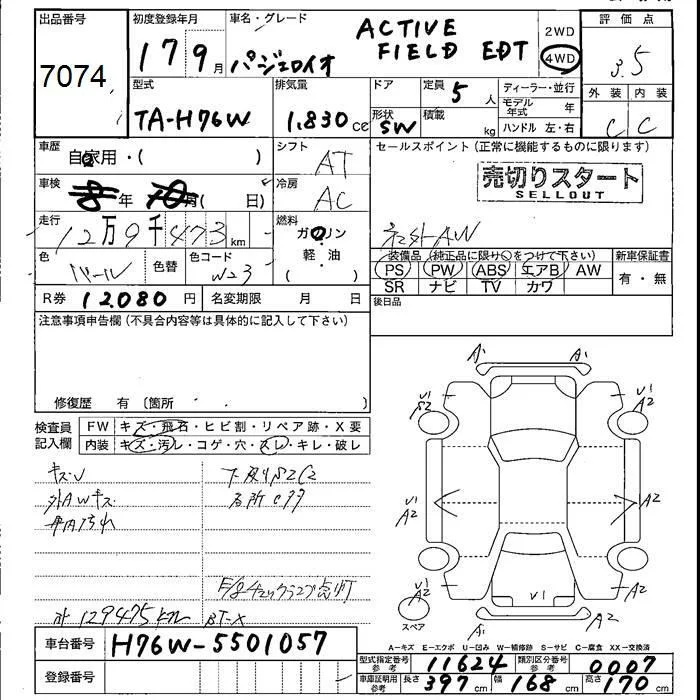 出品番号
7074
初度登録年月
17 9月
車名・グレード
パジェロイオ
ACTIVE
FIELD EDT
2WD
4WD
評価点
3.5
外装 内装
C C
型式
TA-H76W
排気量
1,830cc
ドア
形状
SW
定員 5人
積載 kg
ディーラー・並行
モデル年式 年
ハンドル 左・右
車歴
自家用・( )
シフト
AT
セールスポイント(正常に機能するものに限ります)
売切りスタート
SELLOUT
車検
年 月( 日)
冷房
AC
社外AW
走行
12万9千473km
燃料
ガソリン
軽・油
( )
色
パール
色替
色コード
W23
装備品(純正品に限り○をつけて下さい)
PS PW ABS エアB AW
SR ナビ TV カワ
新車保証書
有・無
R券 12,080円
名変期限 月 日
後日品
注意事項申告欄(不具合内容等は具体的に記入して下さい)
修復歴 有〔箇所
検査員記入欄
FW キズ・飛石・ヒビ割・リペア跡・X要
内装 キズ・汚レ・コゲ・穴・スレ・キレ・破レ
外AWキズ
下廻りS2C2
129475
BT-X
車台番号 H76W-5501057
登録番号
A1 A1
V1 S2
V1 A2
V1 A2
A2
V1 A2
A2
V1
スペア
A1 A2
A-キズ E-エクボ U-凹み W-補修跡 S-サビ C-腐食 XX-交換済
型式指定番号参考 11624
類別区分番号参考 0007
車庫証明用参考 長さ 397cm 幅 168cm 高さ 170cm